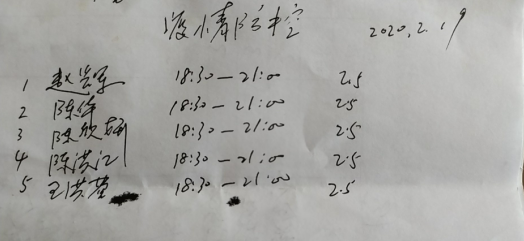 疫情防控 2020.2.19
1 赵 18:30—21:00 2.5
2 陈伟 18:30—21:00 2.5
3 陈欣 18:30—21:00 2.5
4 陈洪江 18:30—21:00 2.5
5 王洪 18:30—21:00 2.5